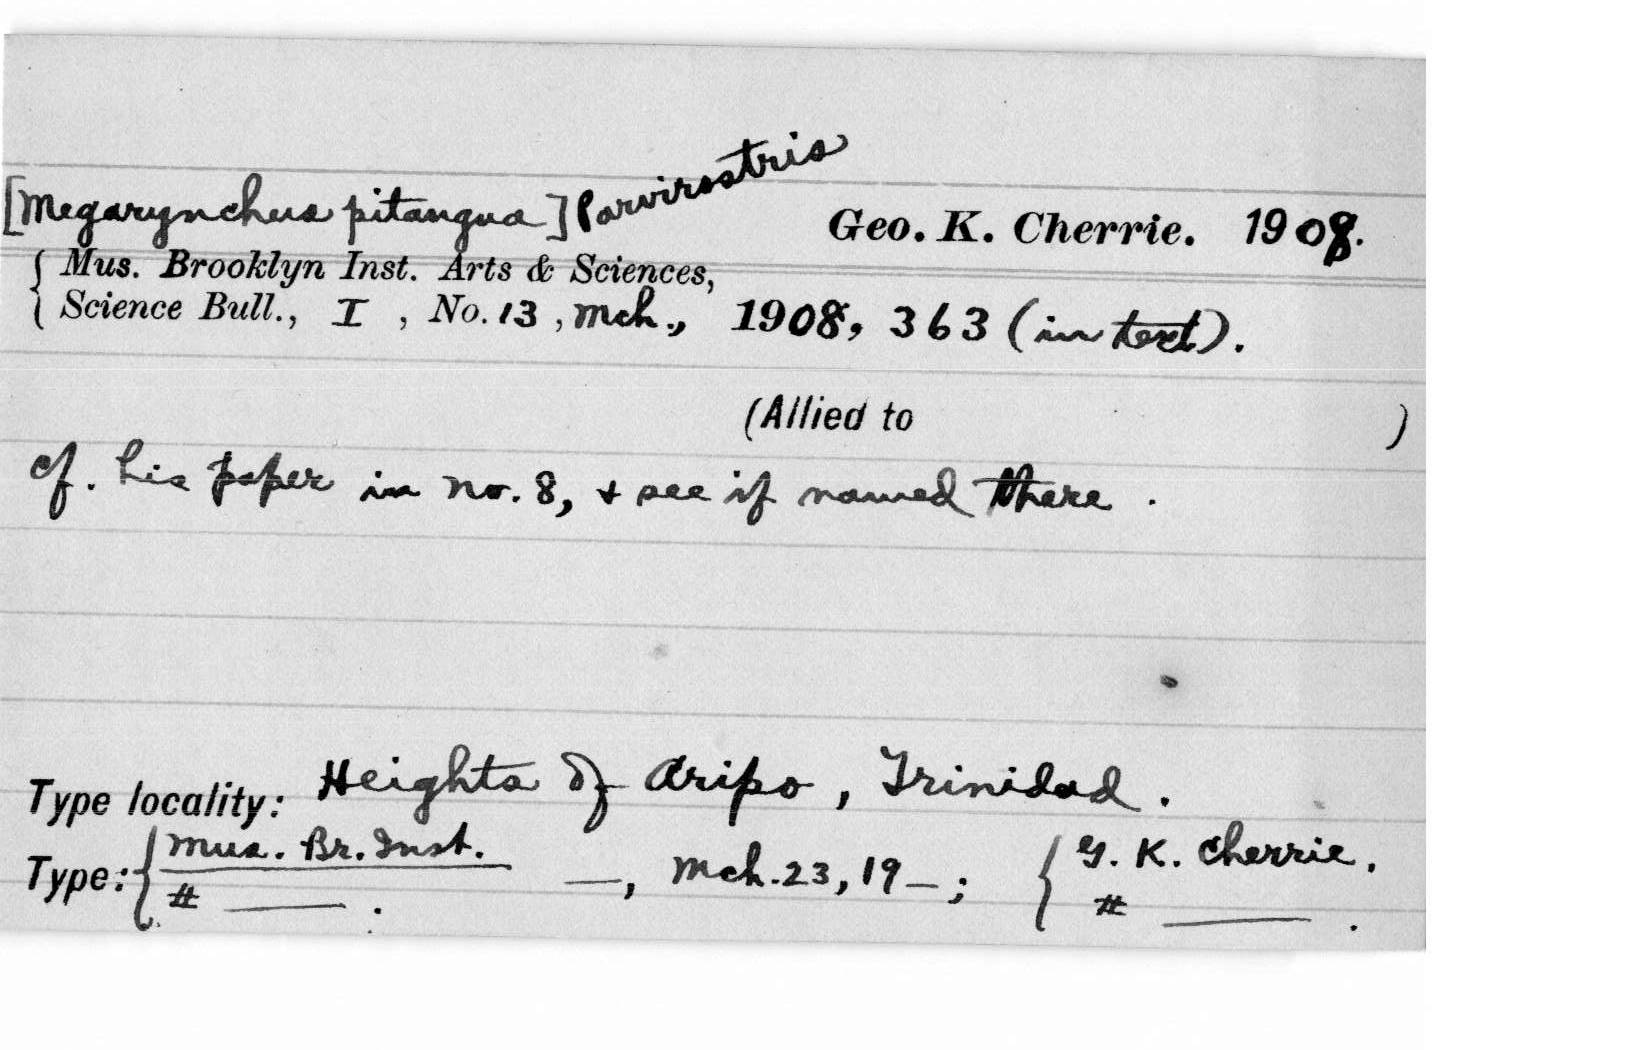 [Megarynchus pitangua] Parvirostris Geo. K. Cherrie. 1908.
{ Mus. Brooklyn Inst. Arts & Sciences,
Science Bull., I , No. 13 , Mch., 1908, 363 (in text).
(Allied to )
cf. his paper in no. 8, & see if named there .
Type locality: Heights of Aripo , Trinidad .
Type: { Mus. Br. Inst. —, Mch. 23, 19—; { G. K. Cherrie .
# ——— . # ——— .